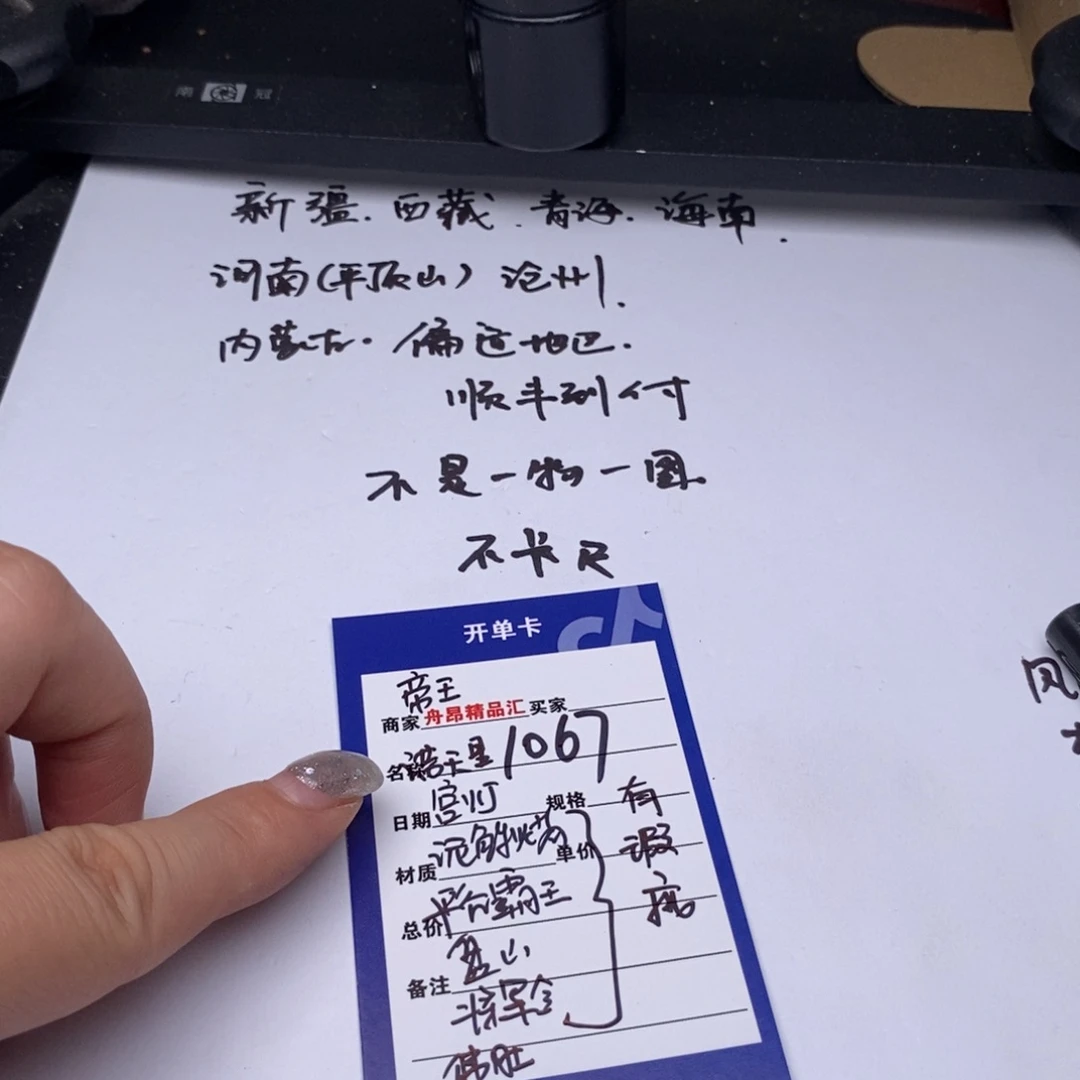 南 冠
新疆.西藏.青海.海南.
河南(平顶山)沧州.
内蒙古.偏远地区.
顺丰到付
不是一物一图.
不卡尺
开单卡
帝王
商家 舟昂精品汇 买家
名称 1067
日期 官灯 规格 有
材质 单价 瑕
总价 霸王 疵
备注 盘山
将军令
风